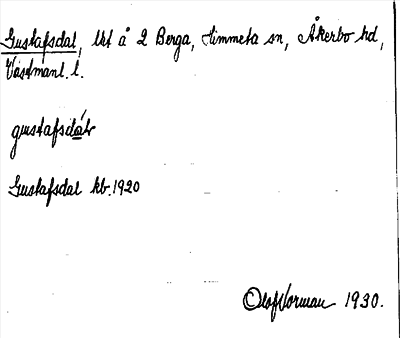 Gustafsdal, lht å 2 Berga, Himmeta sn, Åkerbo hd,
Västmanl. l.
gustafsdáɫ
Gustafsdal kb. 1920
Olof Vorman 1930.